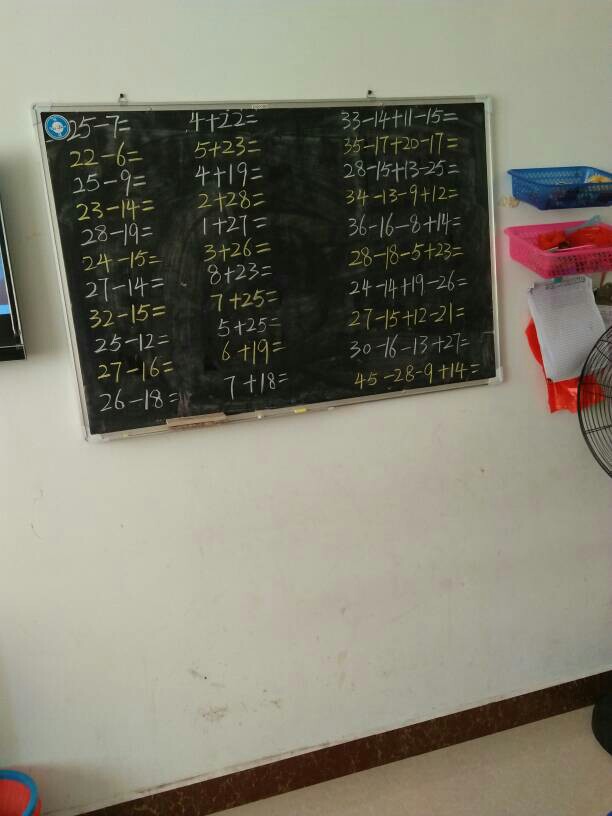 25-7=
22-6=
25-9=
23-14=
28-19=
24-15=
27-14=
32-15=
25-12=
27-16=
26-18=
4+22=
5+23=
4+19=
2+28=
1+27=
3+26=
8+23=
7+25=
5+25=
6+19=
7+18=
33-14+11-15=
35-17+20-17=
28-15+13-25=
34-13-9+12=
36-16-8+14=
28-18-5+23=
24-14+19-26=
27-15+12-21=
30-16-13+27=
45-28-9+14=